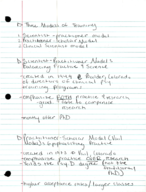 Three Models of Training
1. Scientist-practitioner model
2. Practitioner-scholar model
3. Clinical scientist model
Scientist-Practitioner Model:
Balancing Practice & Science
created in 1949 @ Boulder, Colorado
of directors of clinical psy
training programs
emphasize BOTH practice & research
goal: how to comprise
research
mostly offer PhD
Practitioner-Scholar Model (Vail
Model): Emphasizing Practice
created in 1973 @ Vail, Colorado
emphasize practice OVER research
offer the Psy D degree
PhD)
higher acceptance rates / larger classes